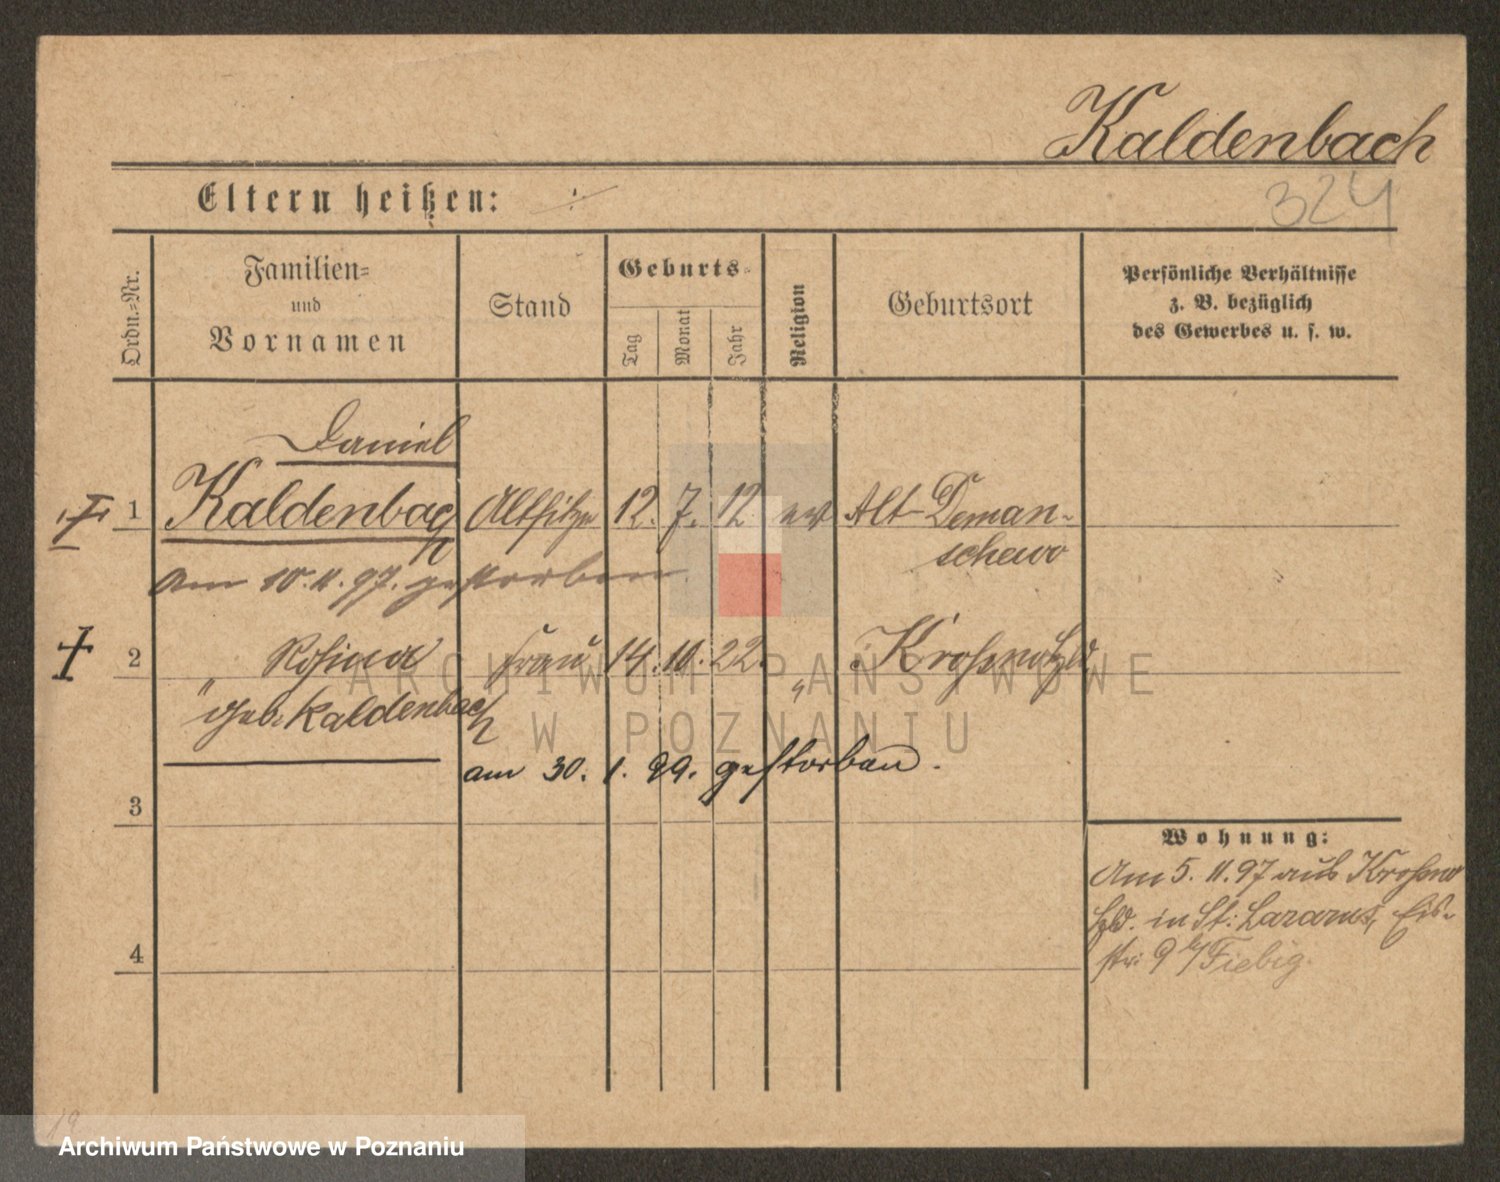 Kaldenbach
Eltern heißen: ÷
324
Ordn.=Nr.
Familien=
und
Vornamen
Stand
Geburts=
Tag
Monat
Jahr
Religion
Geburtsort
Persönliche Verhältnisse
z. B. bezüglich
des Gewerbes u. s. w.
Daniel
1 Kaldenbach Altsitzer 12. 7. 12 ev Alt-Deman-
schewo
am 10. 11. 97. gestorben.
2 " Rosina Frau 14. 10. 22. " Krosnohld
geb. Kaldenbach
am 30. 1. 99. gestorben.
3
Wohnung:
Am 5. 11. 97 aus Krosno
hld. in St. Lazarus, Eis-
str. 9 b/ Fiebig.
4
19
ARCHIWUM PAŃSTWOWE
W POZNANIU
Archiwum Państwowe w Poznaniu